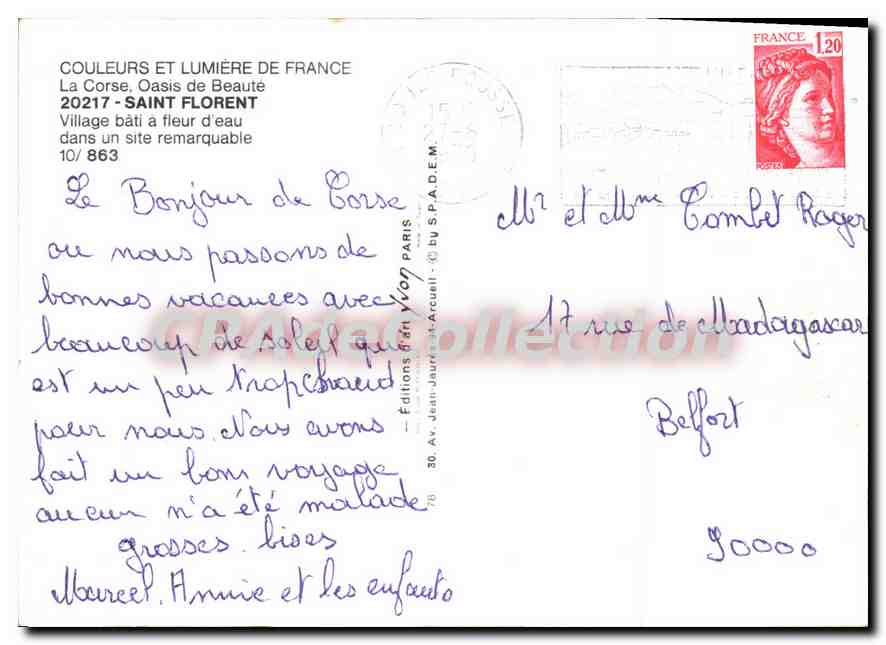 COULEURS ET LUMIÈRE DE FRANCE
La Corse, Oasis de Beauté
20217 - SAINT FLORENT
Village bâti à fleur d'eau
dans un site remarquable
10/ 863
Le Bonjour de Corse
ou nous passons de
bonnes vacances avec
beaucoup de soleil qui
est un peu trop chaud
pour nous. Nous avons
fait un bon voyage
aucun n'a été malade
grosses bises
Marcel. Annie et les enfants
— Éditions d'art yvon PARIS
30, Av. Jean-Jaurès 94-Arcueil - © by S.P.A.D.E.M.
78
FRANCE 1,20
POSTES
Mr et Mme Combet Roger
17 rue de Madagascar
Belfort
90000
CPAdeCollection